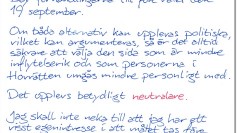 19 september.
Om båda alternativ kan upplevas politiska,
vilket kan argumenteras, så är det alltid
säkrare att välja den sida som är mindre
inflytelserik och som personerna i
Hovrätten umgås mindre personligt med.
Det upplevs betydligt neutralare.
Jag skall inte neka till att jag har ett
visst egenintresse i att målet tas